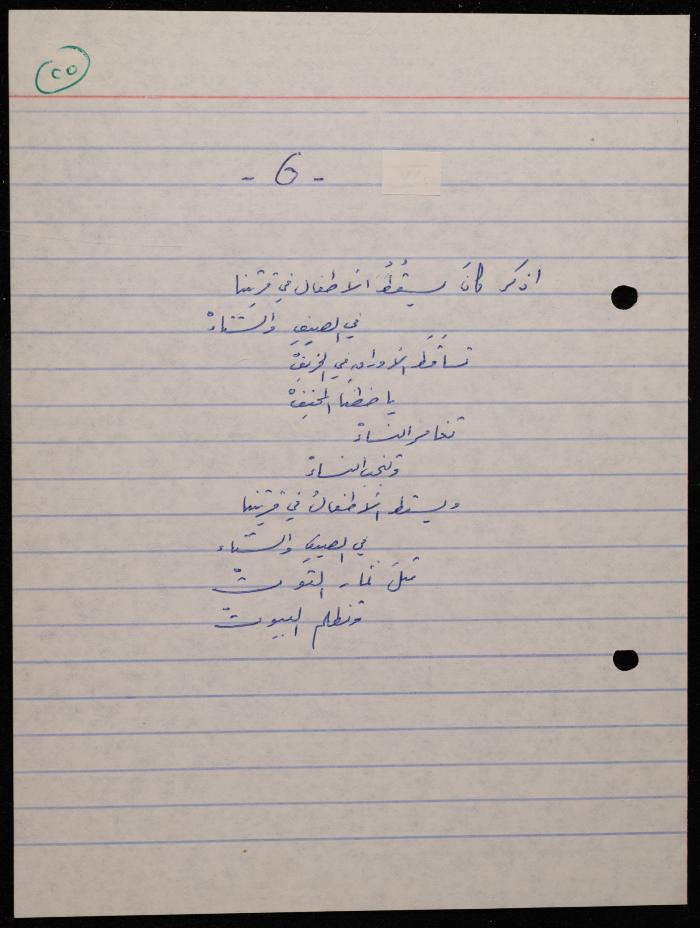 ٢٥
- 6 -
اذكر كانَ يسقُطُ الأطفال في قريتنا
في الصيفِ والشتاءْ
تساقَطَ الأوراقِ في الخريفْ
يا خطنا المخيفْ
تغامر النساءْ
وتنجب النساءْ
ويسقط الأطفالُ في قريتنا
في الصيفِ والشتاء
مثلَ ثمار التوتْ
وتظلم البيوتْ